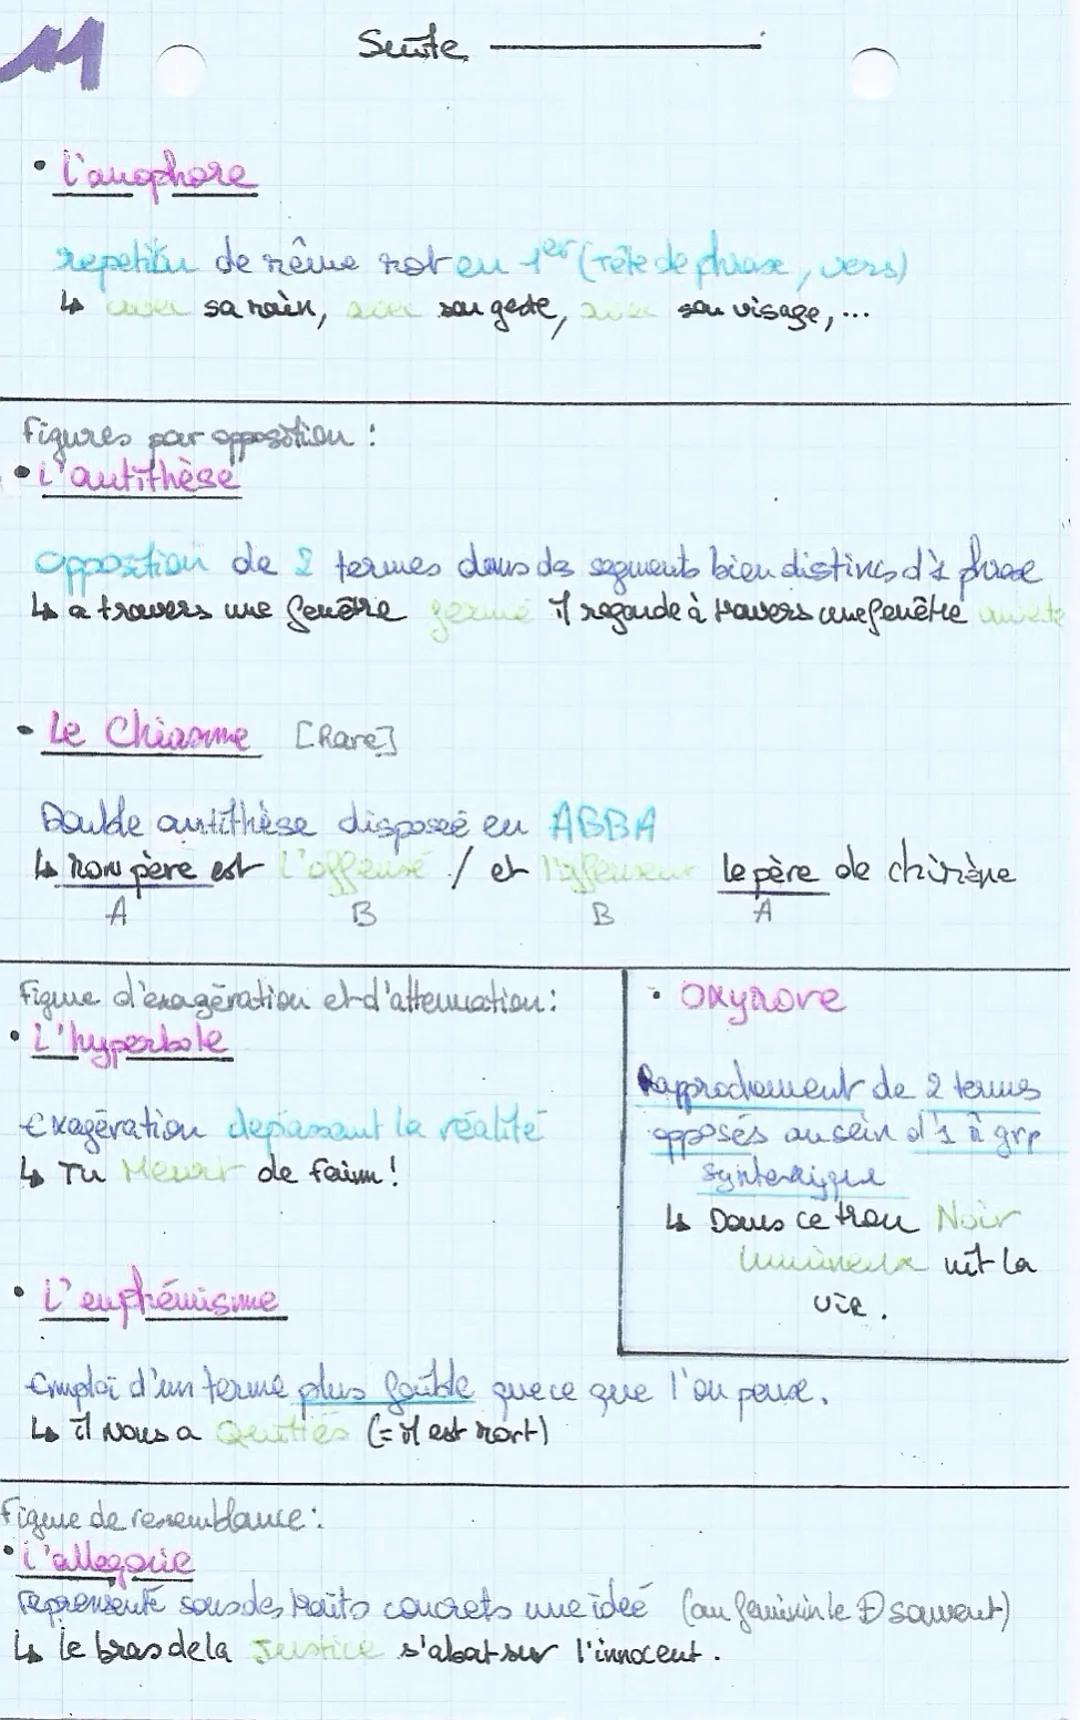 Suite
• L'anaphore
repetition de même mot en 1er (tête de phrase, vers)
↳ avec sa main, avec son geste, avec son visage, ...
Figures par opposition :
• L'antithèse
Opposition de 2 termes dans des segments bien distincs d'1 phrase
↳ a travers une fenêtre fermé il regarde à travers une fenêtre ouverte
• Le Chiasme [Rare]
Double antithèse disposée en ABBA
↳ mon père est l'offensé / et l'offenseur le père de chimène
A B B A
Figure d'exagération et d'attenuation :
• L'hyperbole
Exagération depassant la réalité
↳ Tu Meurt de faim !
• Oxymore
Rapprochement de 2 termes
opposés au sein d'1 m̂ grp
syntaxique
↳ Dans ce trou Noir
lumineux vit la
vie.
• L'euphémisme
Emploi d'un terme plus faible que ce que l'on pense.
↳ il nous a Quittés (= il est mort)
Figure de ressemblance :
• L'allegorie
représenté sous des traits concrets une ideé (au féminin le + souvent)
↳ le bras de la Justice s'abat sur l'innocent.